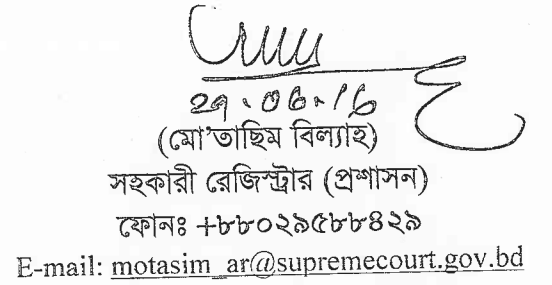 (মো'তাছিম বিল্যাহ)
সহকারী রেজিস্ট্রার (প্রশাসন)
ফোনঃ +৮৮০২৯৫৮৮৪২৯
E-mail: motasim_ar@supremecourt.gov.bd